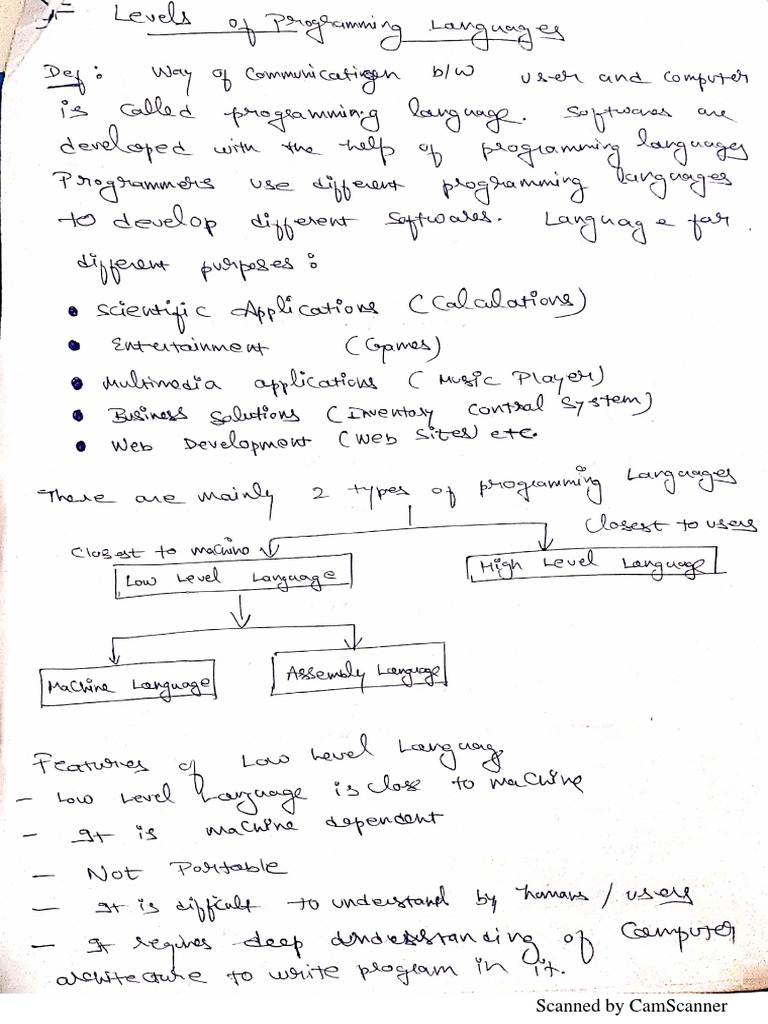 Levels of Programming Languages
Def: Way of Communication b/w user and Computer
is called programming language. Softwares are
developed with the help of programming languages
Programmers use different programming languages
to develop different Softwares. Language for
different purposes:
• Scientific Applications (Calculations)
• Entertainment (Games)
• Multimedia applications (Music Player)
• Business Solutions (Inventory Control System)
• Web Development (Web Sites) etc.
There are mainly 2 types of programming Languages
Closest to users
Closest to machine
Low Level Language
High Level Language
Machine Language
Assembly Language
Features of Low Level Language
- Low Level Language is close to machine
- It is machine dependent
- Not Portable
- It is difficult to understand by humans / users
- It requires deep understanding of Computer
architecture to write program in it.
Scanned by CamScanner